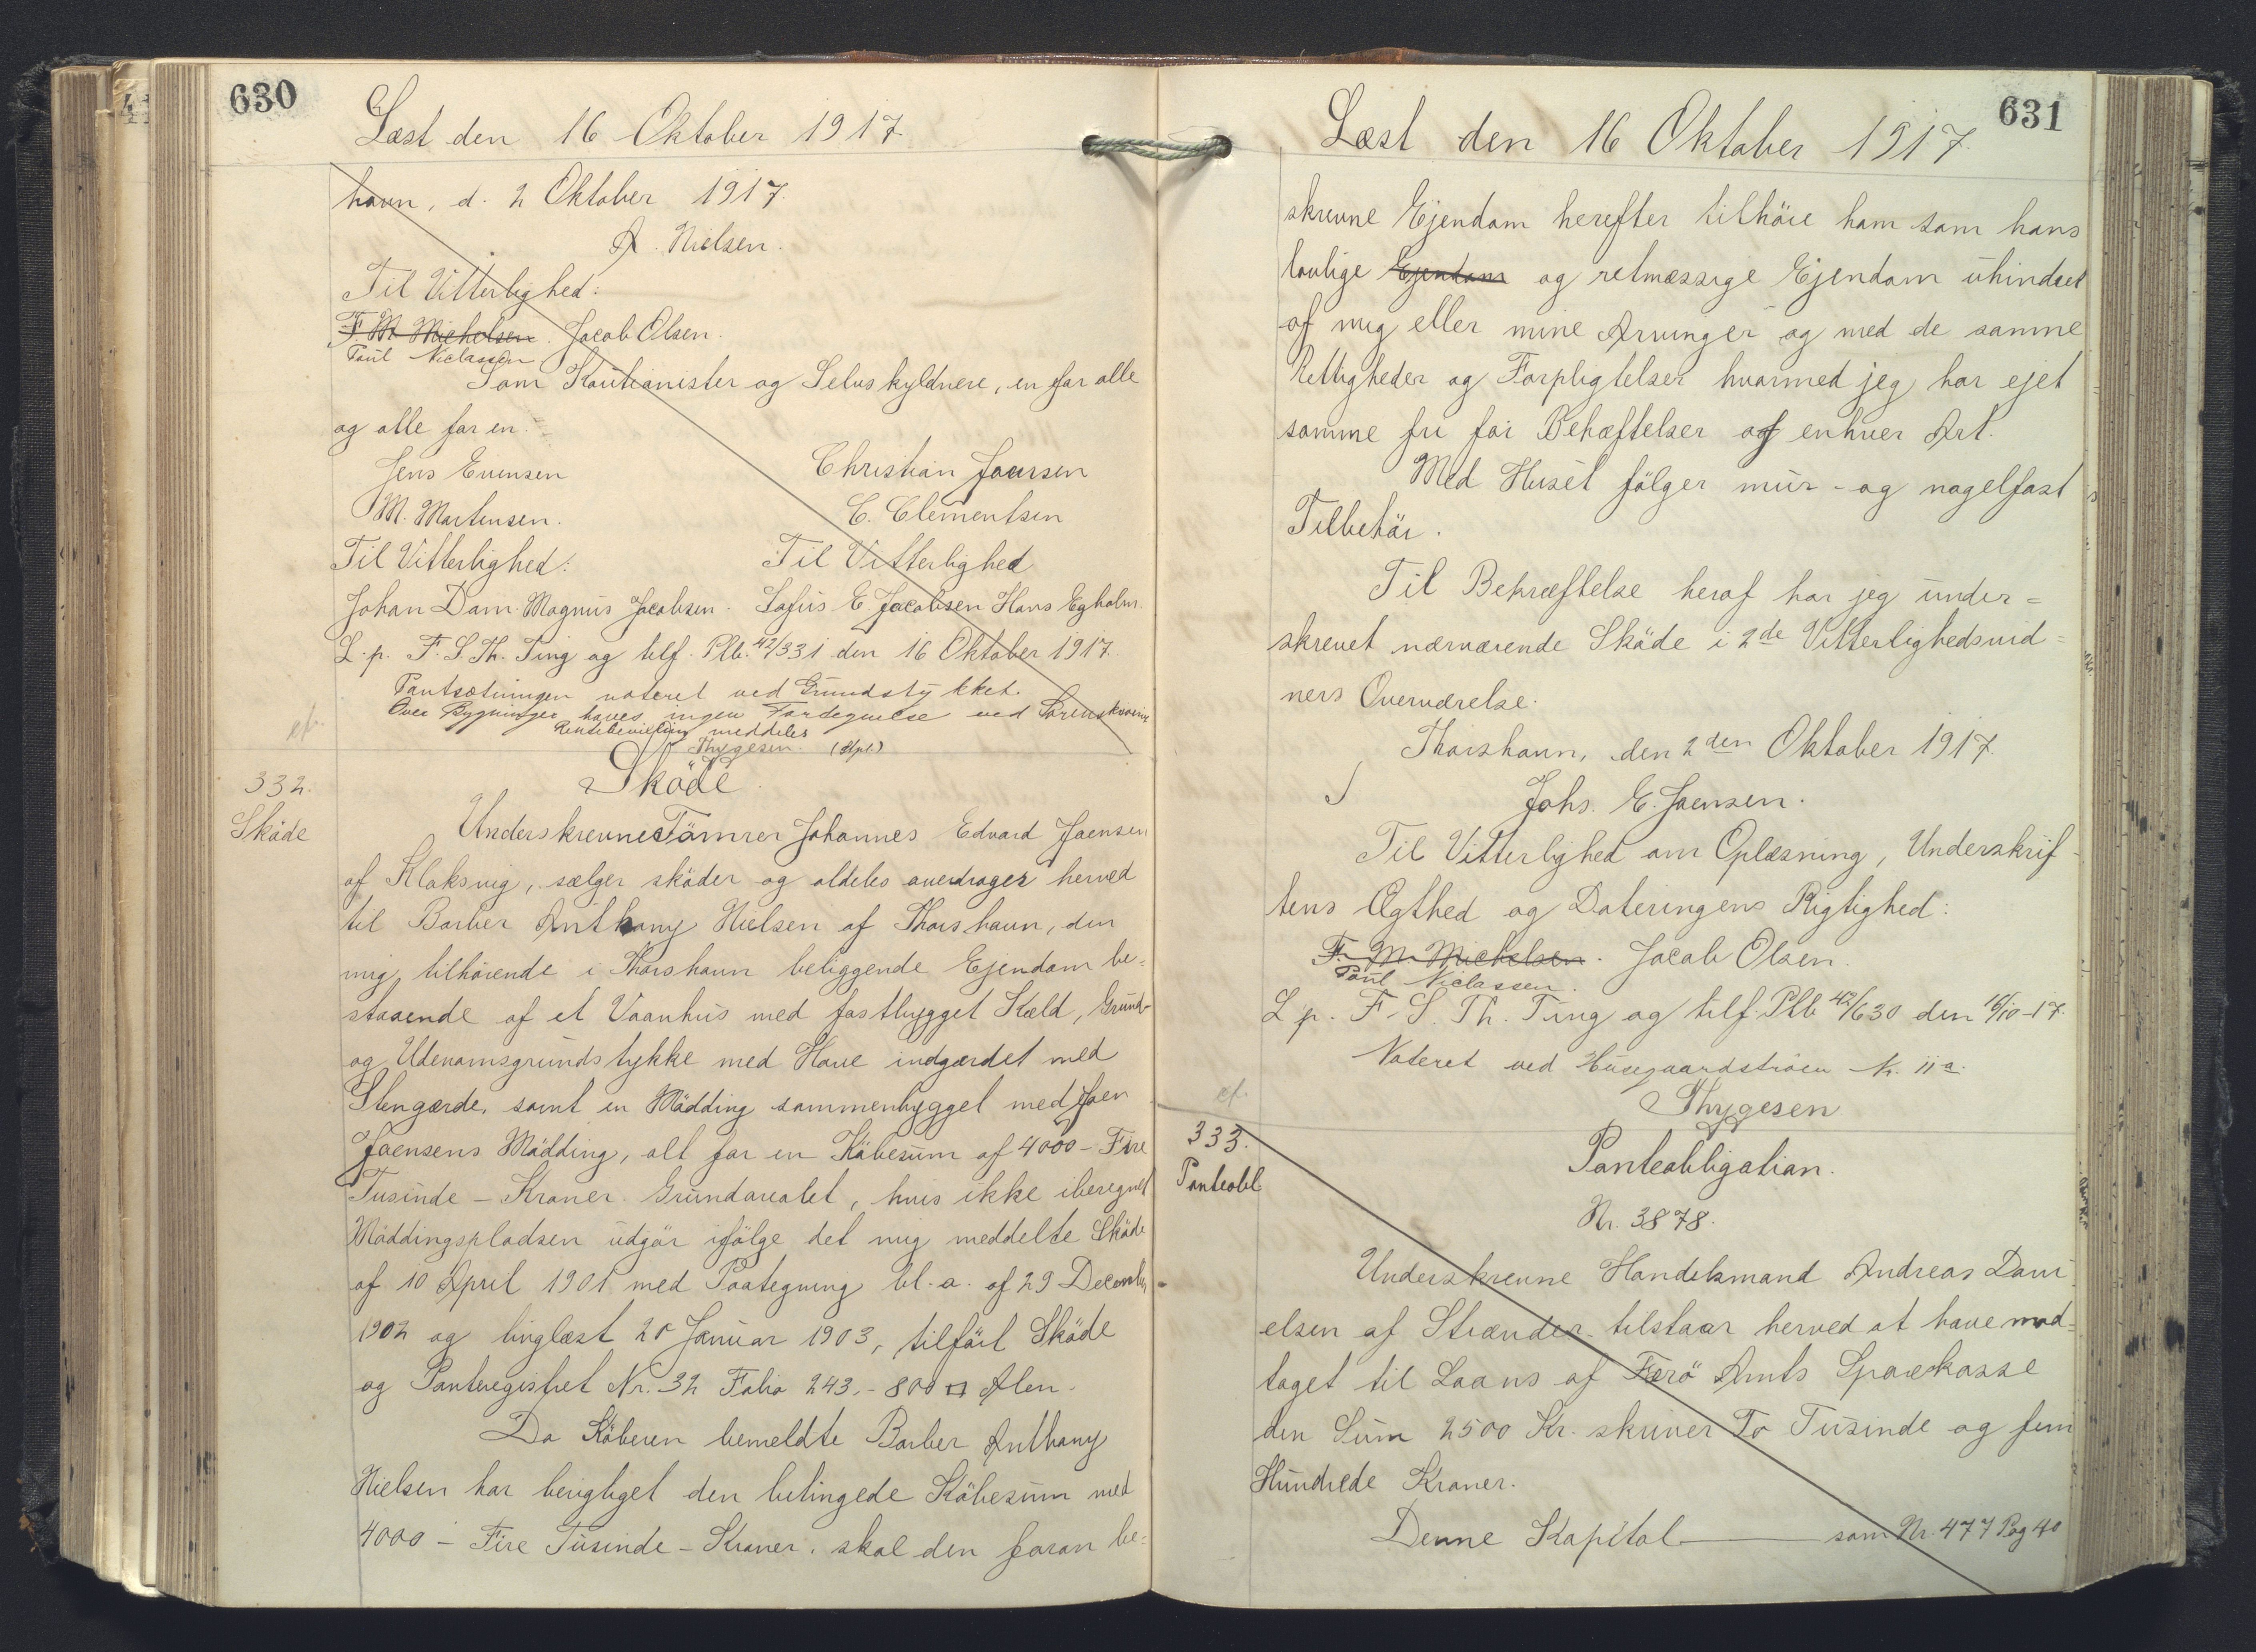 630
Læst den 16 Oktober 1917
havn, d. 2 Oktober 1917.
A. Nielsen.
Til Vitterlighed:
F. M. Michelsen. Jacob Olsen.
Poul Niclassen
Som Kautionister og Selvskyldnere, en for alle
og alle for en:
Jens Evensen Christian Joensen
M. Martensen. C. Clementsen
Til Vitterlighed: Til Vitterlighed
Johan Dam. Magnus Jacobsen. Sofus E. Jacobsen Hans Egholm.
L. p. F. S. Th. Ting og tilf. Plb. 42/331 den 16 Oktober 1917.
Pantsætningen noteret ved Grundstykket.
Over Bygninger haves ingen Fortegnelse ved Sorenskriveriet
Rentebevilling meddeles
Thygesen. (Stpl.)
cf.
332.
Sköde
Sköde.
Underskrevne Tömrer Johannes Edvard Joensen
af Klaksvig, sælger sköder og aldeles overdrager herved
til Barber Anthony Nielsen af Thorshavn, den
mig tilhörende i Thorshavn beliggende Ejendom be=
staaende af et Vaanhus med fastbygget Kæld, Grund-
og Udenomsgrundstykke med Have indgærdet med
Stengærde, samt en Mödding sammenbygget med Joen
Joensens Mödding, alt for en Köbesum af 4000 - Fire
Tusinde - Kroner. Grundarealet, hvis ikke iberegnet
Möddingspladsen udgör ifölge det mig meddelte Sköde
af 10 April 1901 med Paategning bl. a. af 29 December
1902 og tinglæst 20 Januar 1903, tilfört Sköde
og Panteregistret Nr. 32 Folio 243. - 800 □ Alen.
Da Köberen bemeldte Barber Anthony
Nielsen har berigtiget den betingede Köbesum med
4000 - Fire Tusinde - Kroner. skal den foran be=
631
Læst den 16 Oktober 1917.
skrevne Ejendom herefter tilhöre ham som hans
lovlige Ejendom og retmæssige Ejendom uhindret
af mig eller mine Arvinger og med de samme
Rettigheder og Forpligtelser hvormed jeg har ejet
samme fri for Behæftelser af enhver Art.
Med Huset fölger mur- og nagelfast
Tilbehör.
Til Bekræftelse heraf har jeg under=
skrevet nærværende Sköde i 2de Vitterlighedsvid=
ners Overværelse.
Thorshavn, den 2den Oktober 1917.
Johs. E. Joensen.
Til Vitterlighed om Oplæsning, Underskrif-
tens Ægthed og Dateringens Rigtighed:
F. M. Michelsen. Jacob Olsen.
Poul Niclassen.
L. p. F. S. Th. Ting og tilf. Plb 42/630 den 16/10-17.
Noteret ved Husegaardströen Nr. 11a.
Thygesen
cf.
333.
Panteobl.
Panteobligation.
Nr. 3878.
Underskrevne Handelsmand Andreas Dani
elsen af Strænder tilstaar herved at have mod=
taget til Laans af Færö Amts Sparekasse
den Sum 2500 Kr. skriver To Tusinde og fem
Hundrede Kroner.
Denne Kapital ——— som Nr. 477 Pag 40